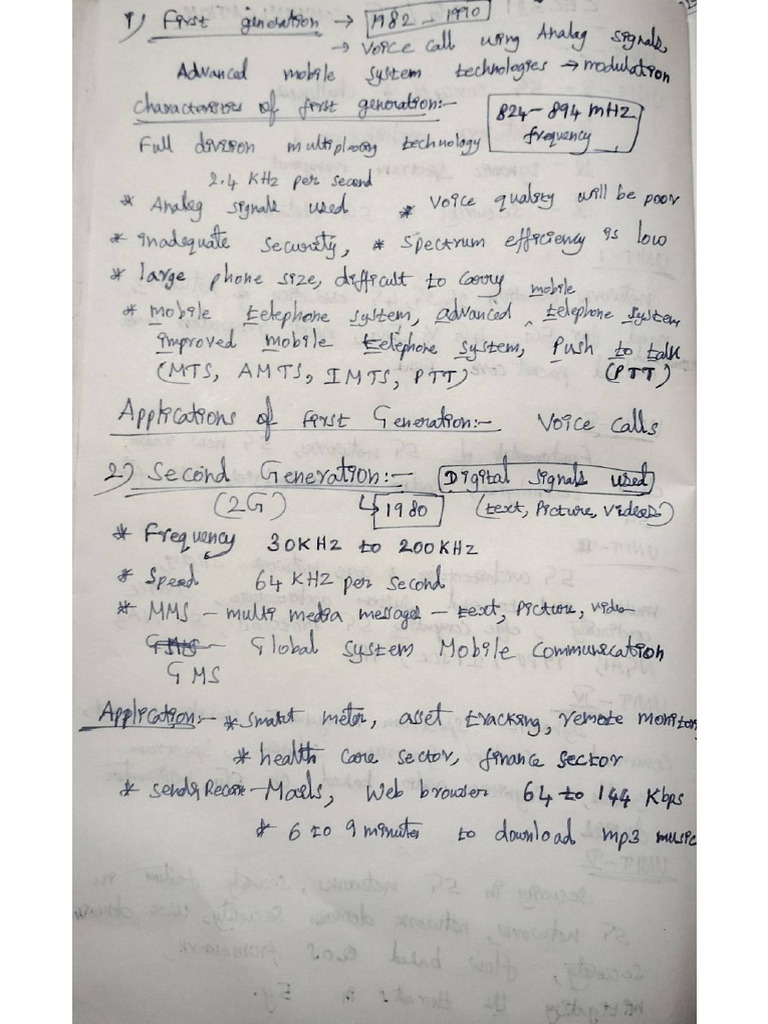 1) First generation → 1982 - 1990
→ Voice call using Analog signals,
Advanced mobile system technologies → modulation
Characteristics of first generation:-
824-894 MHZ frequency
Full division multiplexing technology
2.4 KHz per second
* Analog signals used * Voice quality will be poor
* inadequate security, * Spectrum efficiency is low
* large phone size, difficult to carry mobile
* mobile telephone system, advanced telephone system,
improved mobile telephone system, Push to talk
(MTS, AMTS, IMTS, PTT) (PTT)
Applications of First Generation:- Voice calls
2) Second Generation:- Digital signals used
(2G) ↳ 1980 (text, Picture, Videos)
* Frequency 30KHz to 200KHz
* Speed 64 KHz per second
* MMS - multi media messages - text, Picture, video
- Global System Mobile Communication
GMS
Application:- * Smart meter, asset tracking, remote monitor
* health care sector, finance sector
* send & Mails, Web browser 64 to 144 Kbps
* 6 to 9 minutes to download mp3 music